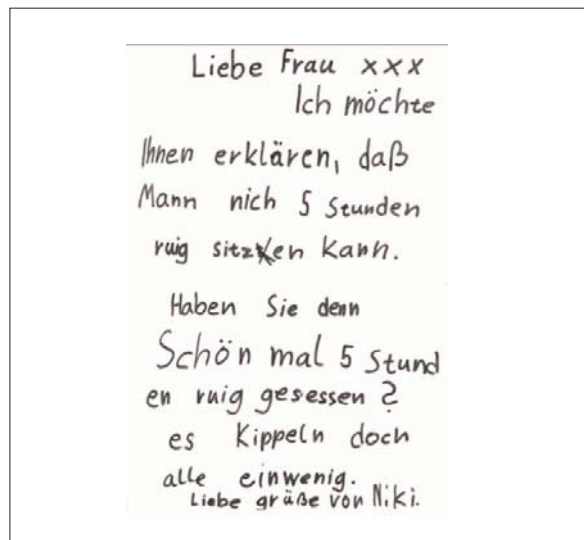 Liebe Frau xxx
Ich möchte
Ihnen erklären, daß
Mann nich 5 Stunden
ruig sitzen kann.
Haben Sie denn
Schön mal 5 Stund
en ruig gesessen?
es Kippeln doch
alle einwenig.
Liebe grüße von Niki.